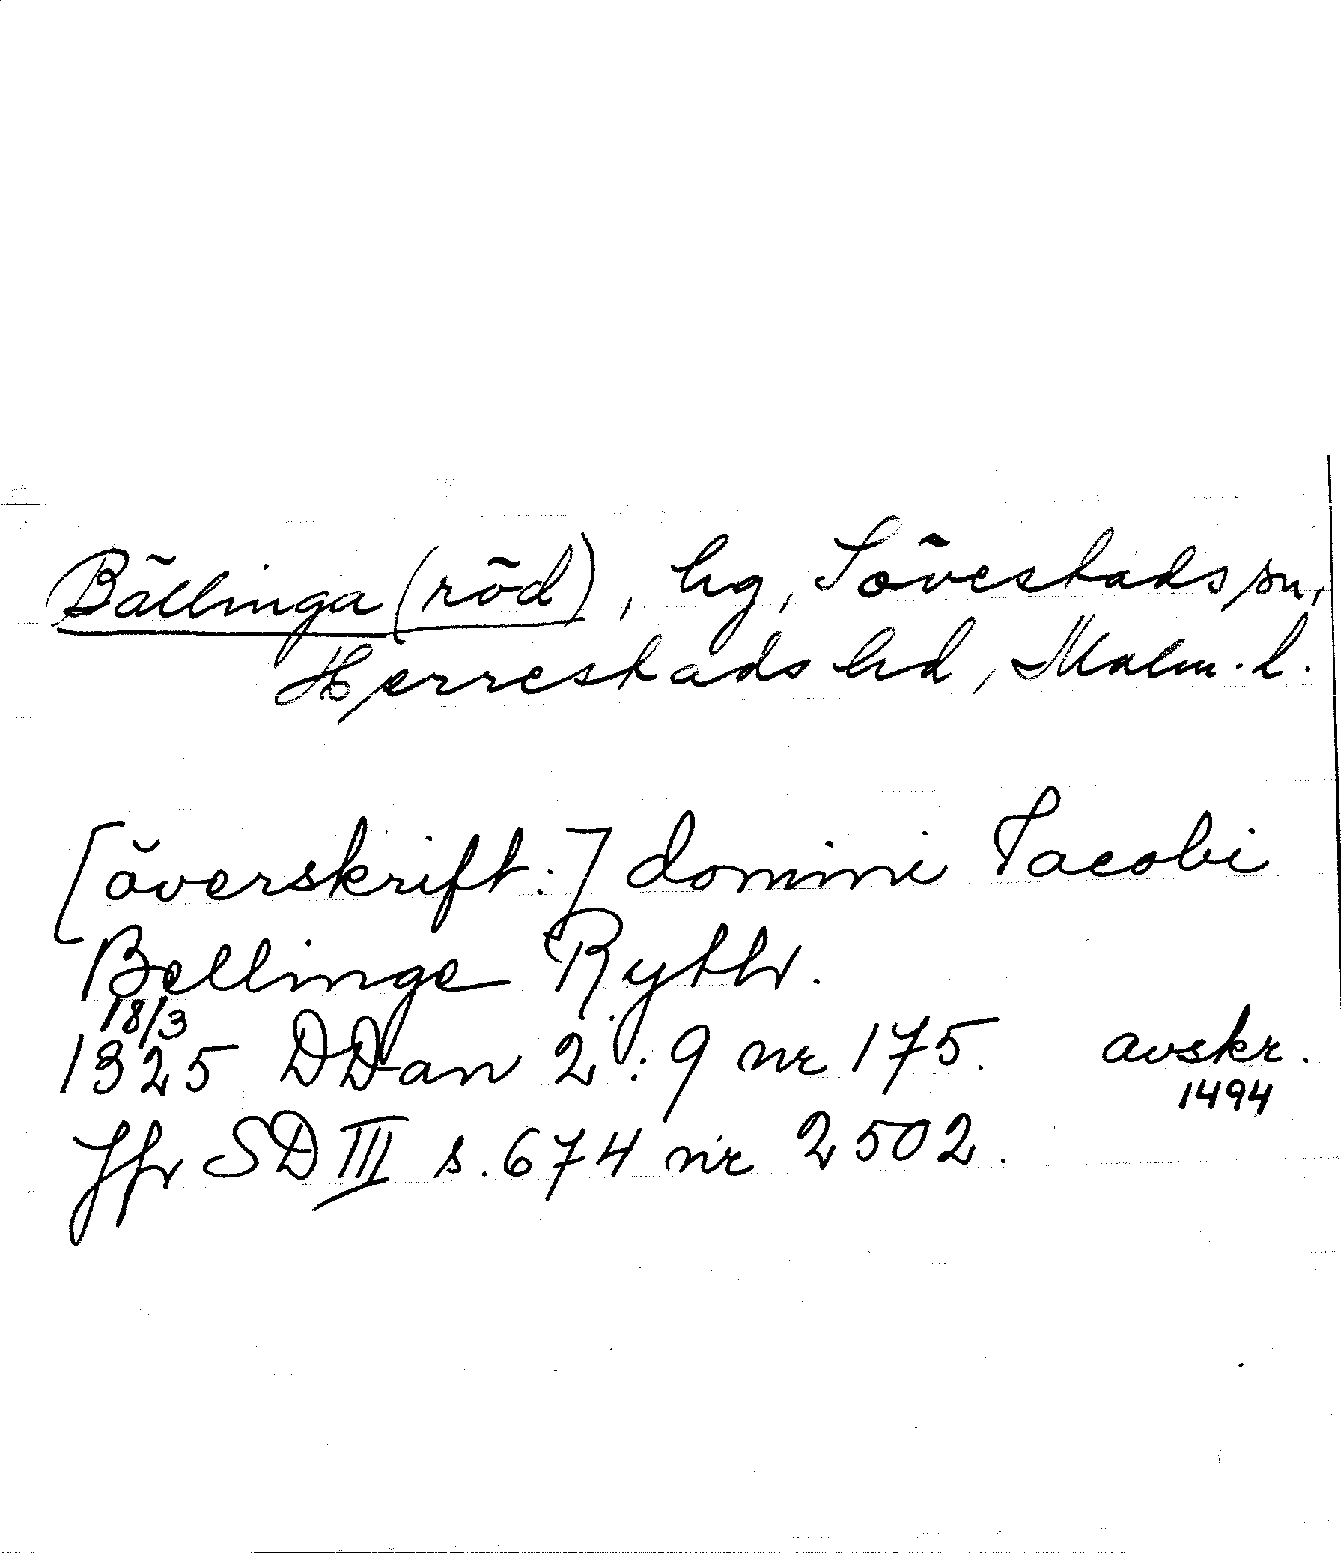 Bällinga (röd), hg, Sövestads sn,
Herrestads hd, Malm. l.
[överskrift:] domini Iacobi
Bellinge Rythr.
18/3
1325 DDan 2:9 nr 175. avskr.
1494
Jfr SD III s. 674 nr 2502.